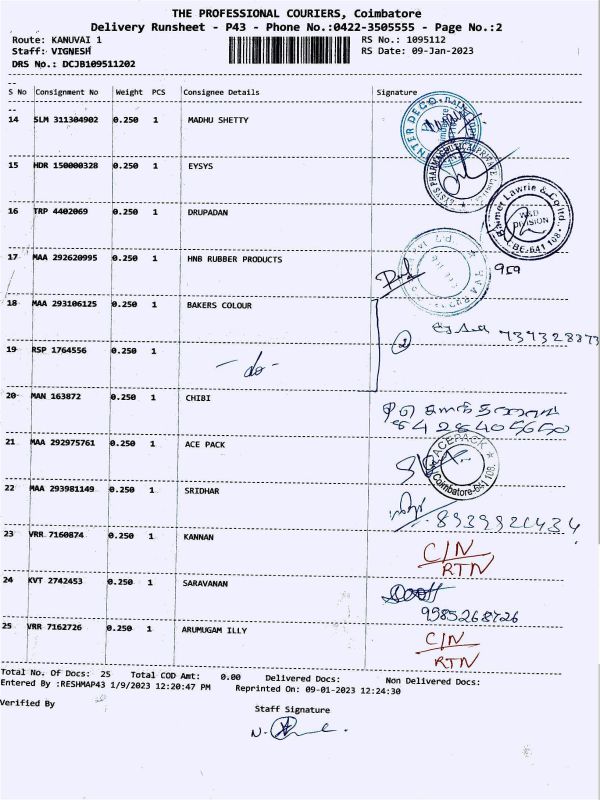 THE PROFESSIONAL COURIERS, Coimbatore
Delivery Runsheet - P43 - Phone No.:0422-3505555 - Page No.:2
Route: KANUVAI 1 RS No.: 1095112
Staff: VIGNESH RS Date: 09-Jan-2023
DRS No.: DCJB109511202
S No Consignment No Weight PCS Consignee Details Signature
14 SLM 311304902 0.250 1 MADHU SHETTY
15 HDR 150000328 0.250 1 EYSYS
16 TRP 4402069 0.250 1 DRUPADAN
Balmer Lawrie & Co ltd.
W&D
DIVISION
CBE-641 108.
17 MAA 292620995 0.250 1 HNB RUBBER PRODUCTS
959
18 MAA 293106125 0.250 1 BAKERS COLOUR
2
19 RSP 1764556 0.250 1
- do -
20 MAN 163872 0.250 1 CHIBI
21 MAA 292975761 0.250 1 ACE PACK
ACEPACK
Coimbatore-641 108.
22 MAA 293981149 0.250 1 SRIDHAR
8939921434
23 VRR 7160874 0.250 1 KANNAN
C/N
RTN
24 KVT 2742453 0.250 1 SARAVANAN
9985268726
25 VRR 7162726 0.250 1 ARUMUGAM ILLY
C/N
RTN
Total No. Of Docs: 25 Total COD Amt: 0.00 Delivered Docs: Non Delivered Docs:
Entered By :RESHMAP43 1/9/2023 12:20:47 PM Reprinted On: 09-01-2023 12:24:30
Verified By Staff Signature